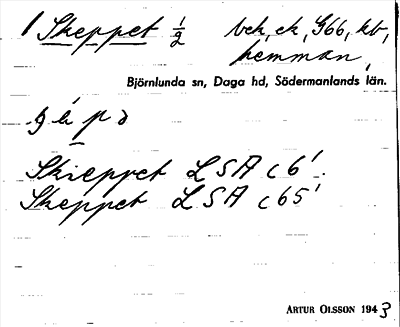 1 Skeppet 1/2 bck, ek, G66, kb,
hemman,
Björnlunda sn, Daga hd, Södermanlands län.
Skieppet LSA c 6'
Skeppet LSA c 65'
ARTUR OLSSON 1943